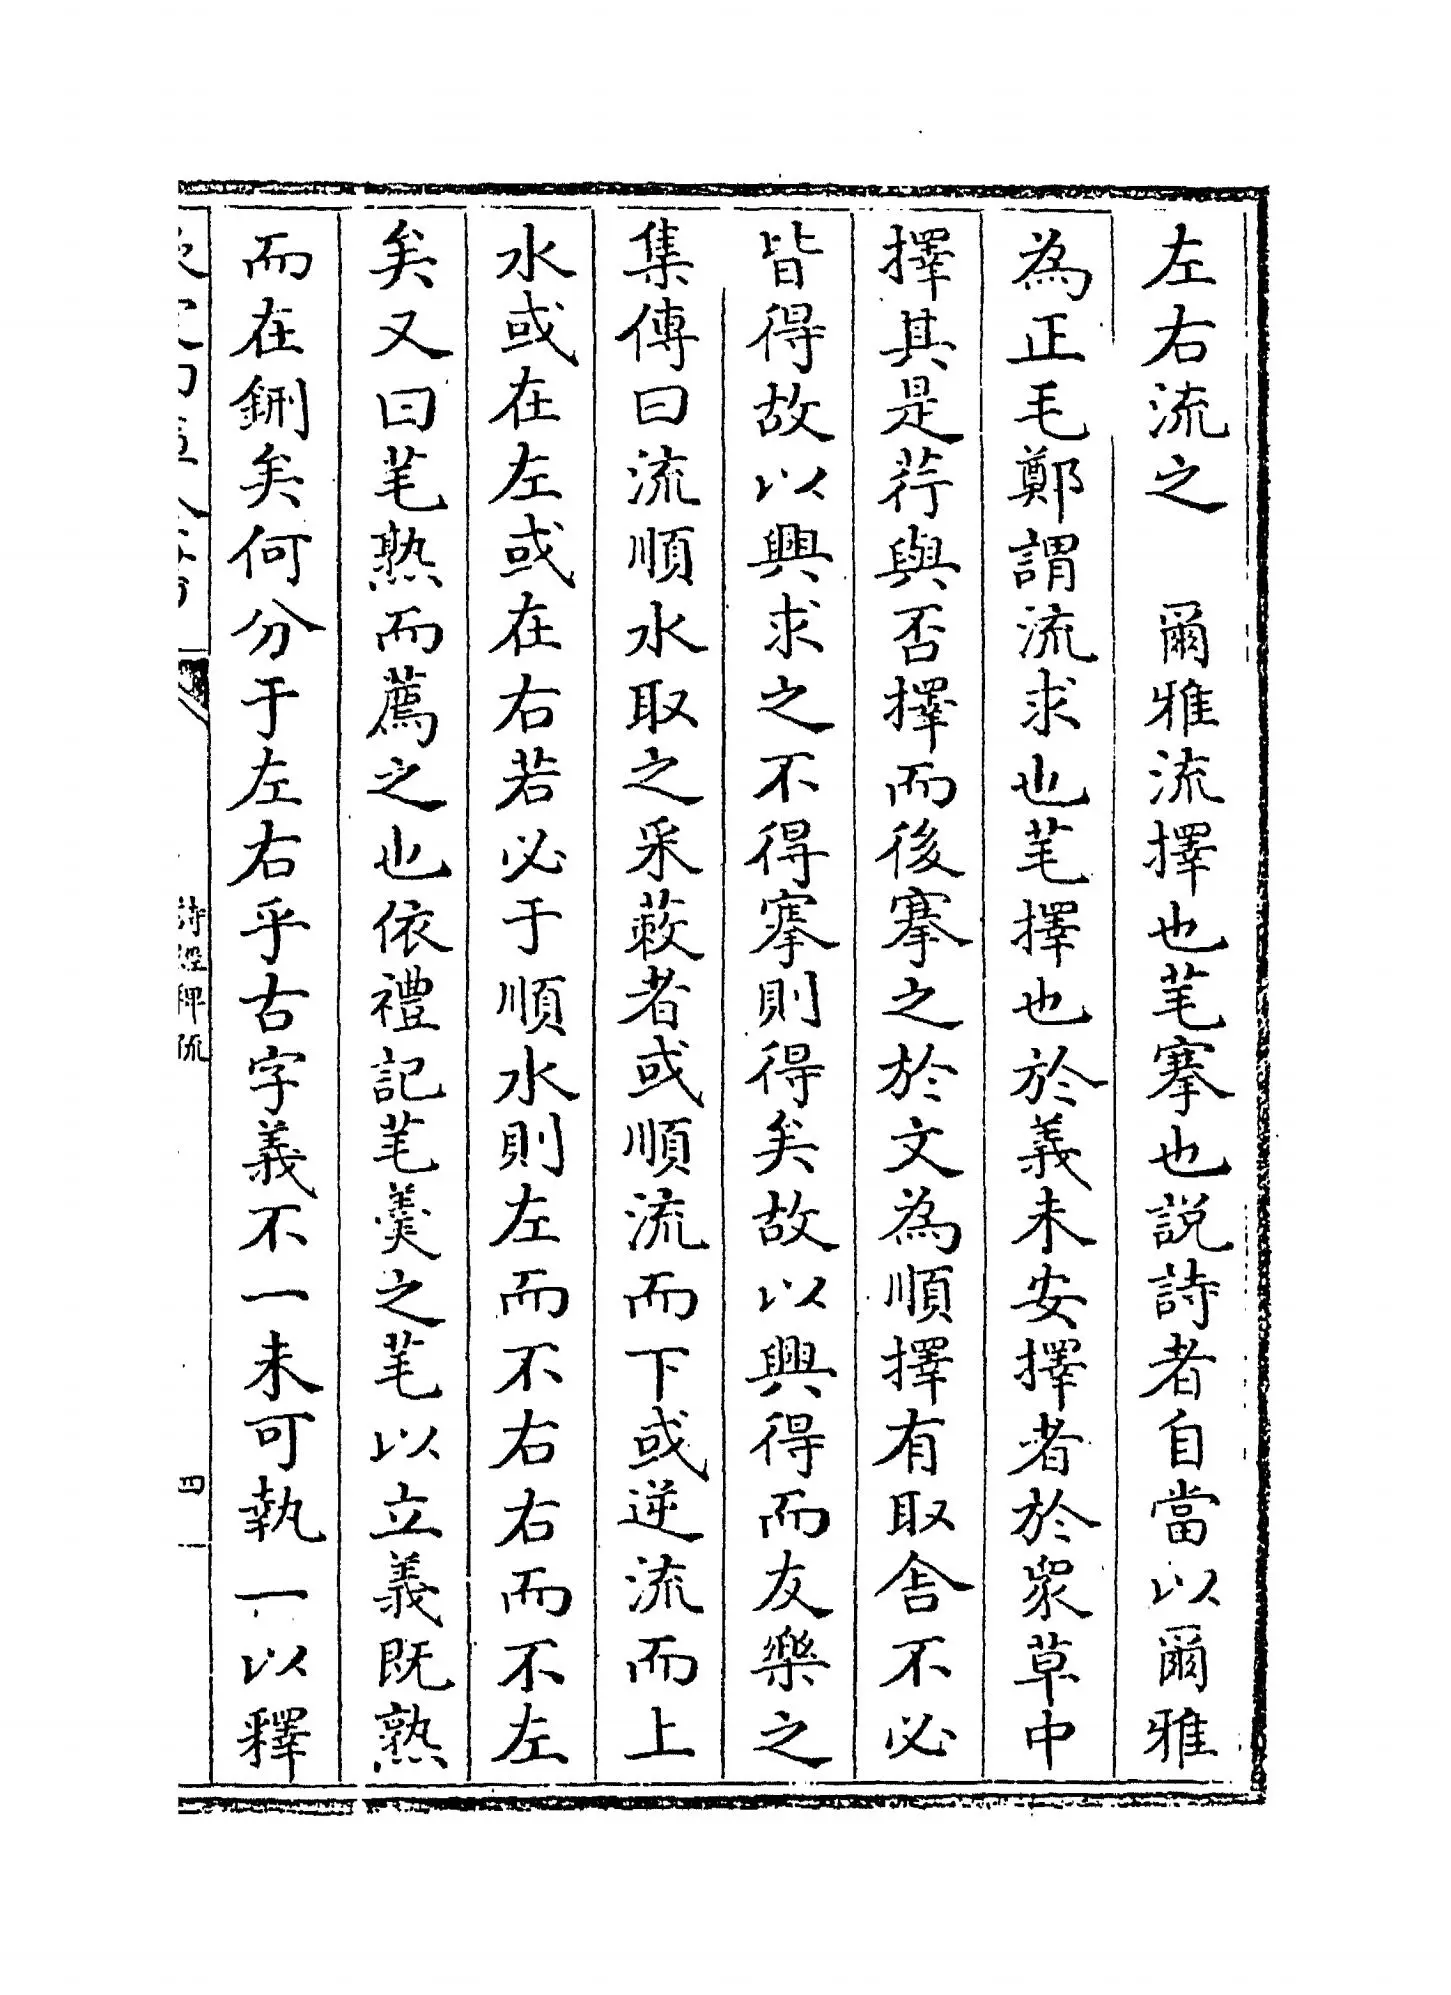 左右流之　爾雅流擇也芼搴也説詩者自當以爾雅
為正毛鄭謂流求也芼擇也於義未安擇者於衆草中
擇其是荇與否擇而後搴之於文為順擇有取舎不必
皆得故以興求之不得搴則得矣故以興得而友樂之
集傳曰流順水取之采蔌者或順流而下或逆流而上
水或在左或在右若必于順水則左而不右右而不左
矣又曰芼熟而薦之也依禮記芼羮之芼以立義既熟
而在鉶矣何分于左右乎古字義不一未可執一以釋
詩經稗疏
四